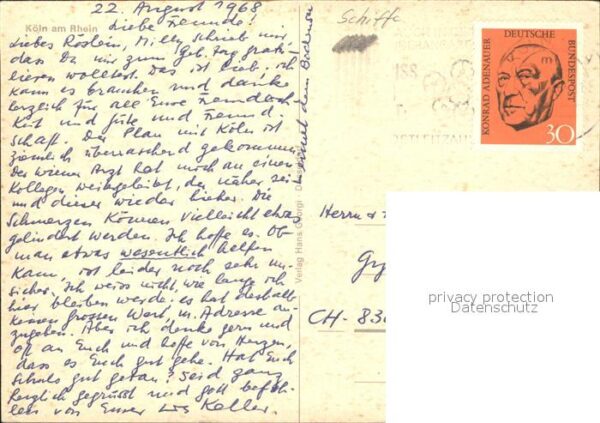 22. August 1968
Köln am Rhein
Liebe Freunde!
Liebes Röslein, Milly schrieb mir
dass Du mir zum Geb.tag gratu-
lieren wolltest. Das ist lieb. ich
kann es brauchen und danke
herzlich für all Eure Freundlich-
keit und Güte und Freund-
schaft. Der Plan mit Köln ist
ziemlich überraschend gekommen
Der Wiener Arzt hat mich an einen
Kollegen weitergeleitet, der näher sei
und dieser wieder hieher. Die
Schmerzen können vielleicht etwas
gelindert werden. Ich hoffe es. Ob
man etwas wesentlich helfen
kann, ist leider noch sehr un-
sicher. Ich weiss nicht, wie lange ich
hier bleiben werde: es hat deshalb
keinen grossen Wert, m. Adresse an-
zugeben. Aber ich denke gern und
oft an Euch und hoffe von Herzen,
dass es Euch gut gehe. Hat Euch
Schuls gut getan? Seid ganz
herzlich gegrüsst und Gott befoh-
len von Eurer Keller.
Verlag Hans Georgi
Schiffe
KONRAD ADENAUER
DEUTSCHE
BUNDESPOST
30
Herrn &
CH-
privacy protection
Datenschutz